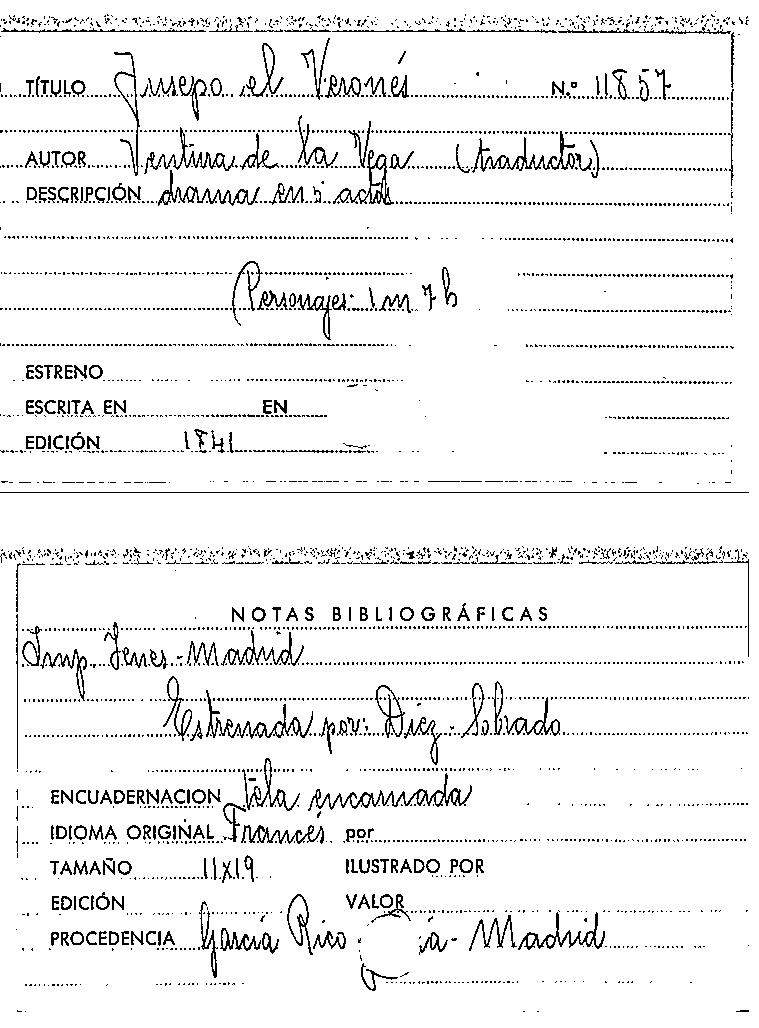 TÍTULO Jusepo el Veronés N.º 11857
AUTOR Ventura de la Vega (traductor)
DESCRIPCIÓN drama en 5 actos
Personajes: 1 m 7 h
ESTRENO
ESCRITA EN EN
EDICIÓN 1841
NOTAS BIBLIOGRÁFICAS
Imp. Yenes - Madrid
Estrenada por: Diez - Sobrado
ENCUADERNACION tela encarnada
IDIOMA ORIGINAL Francés por
TAMAÑO 11x19 ILUSTRADO POR
EDICIÓN VALOR
PROCEDENCIA García Rico ía - Madrid